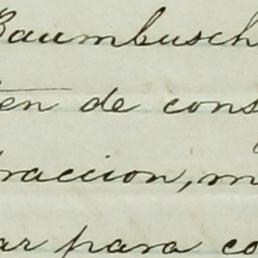 Baumbusch
ten de cons
traccion, m
ar para co